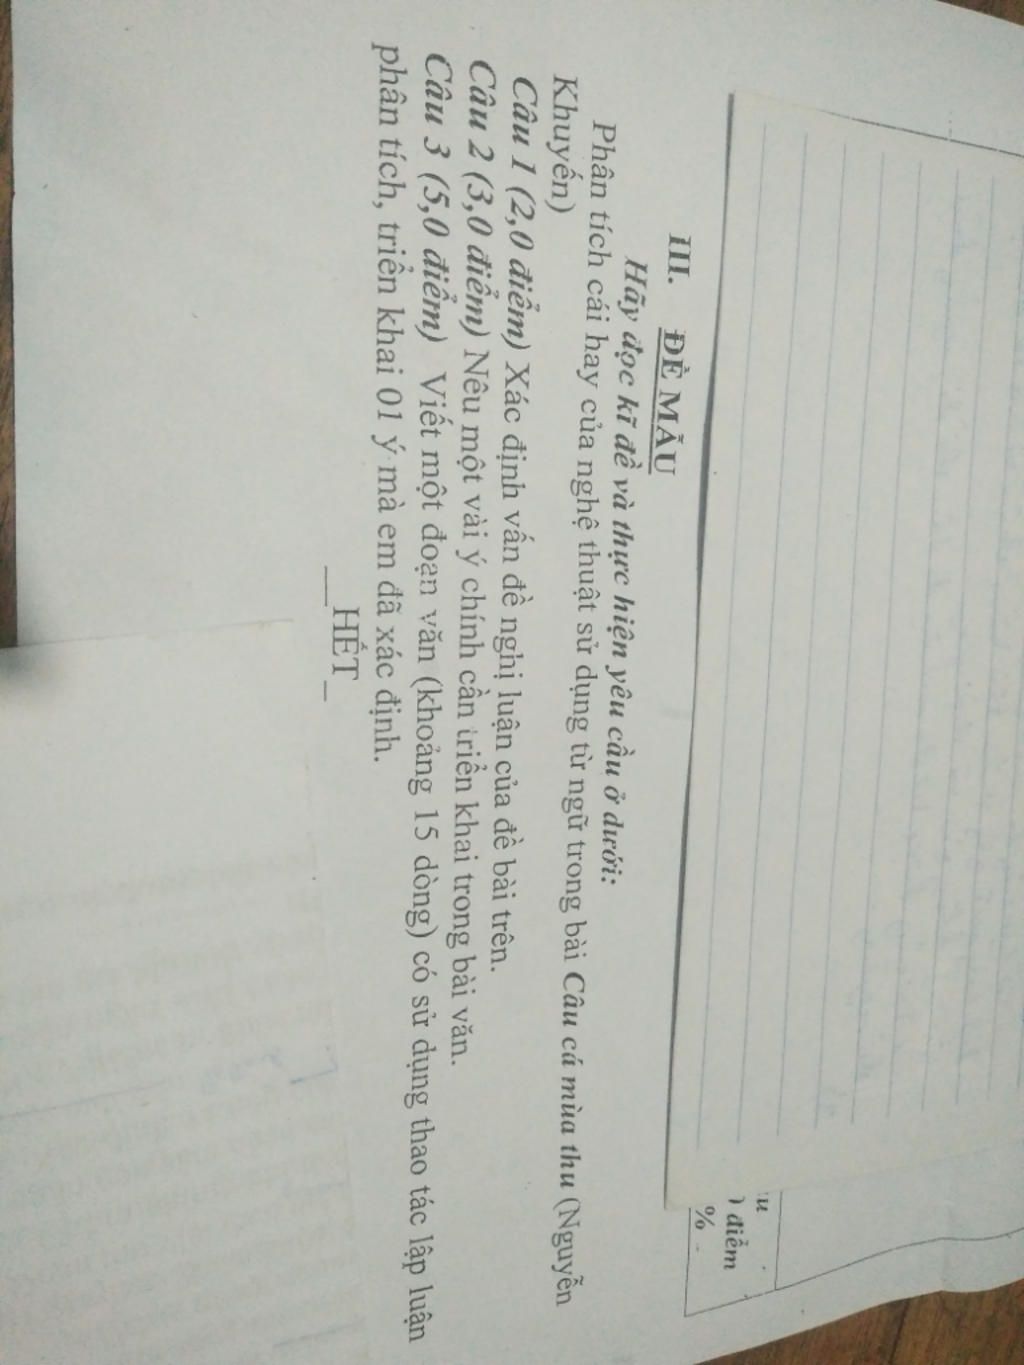 ɩu
) điểm
%
III. ĐỀ MẪU
Hãy đọc kĩ đề và thực hiện yêu cầu ở dưới:
Phân tích cái hay của nghệ thuật sử dụng từ ngữ trong bài Câu cá mùa thu (Nguyễn
Khuyến)
Câu 1 (2,0 điểm) Xác định vấn đề nghị luận của đề bài trên.
Câu 2 (3,0 điểm) Nêu một vài ý chính cần triển khai trong bài văn.
Câu 3 (5,0 điểm) Viết một đoạn văn (khoảng 15 dòng) có sử dụng thao tác lập luận
phân tích, triển khai 01 ý mà em đã xác định.
___HẾT_